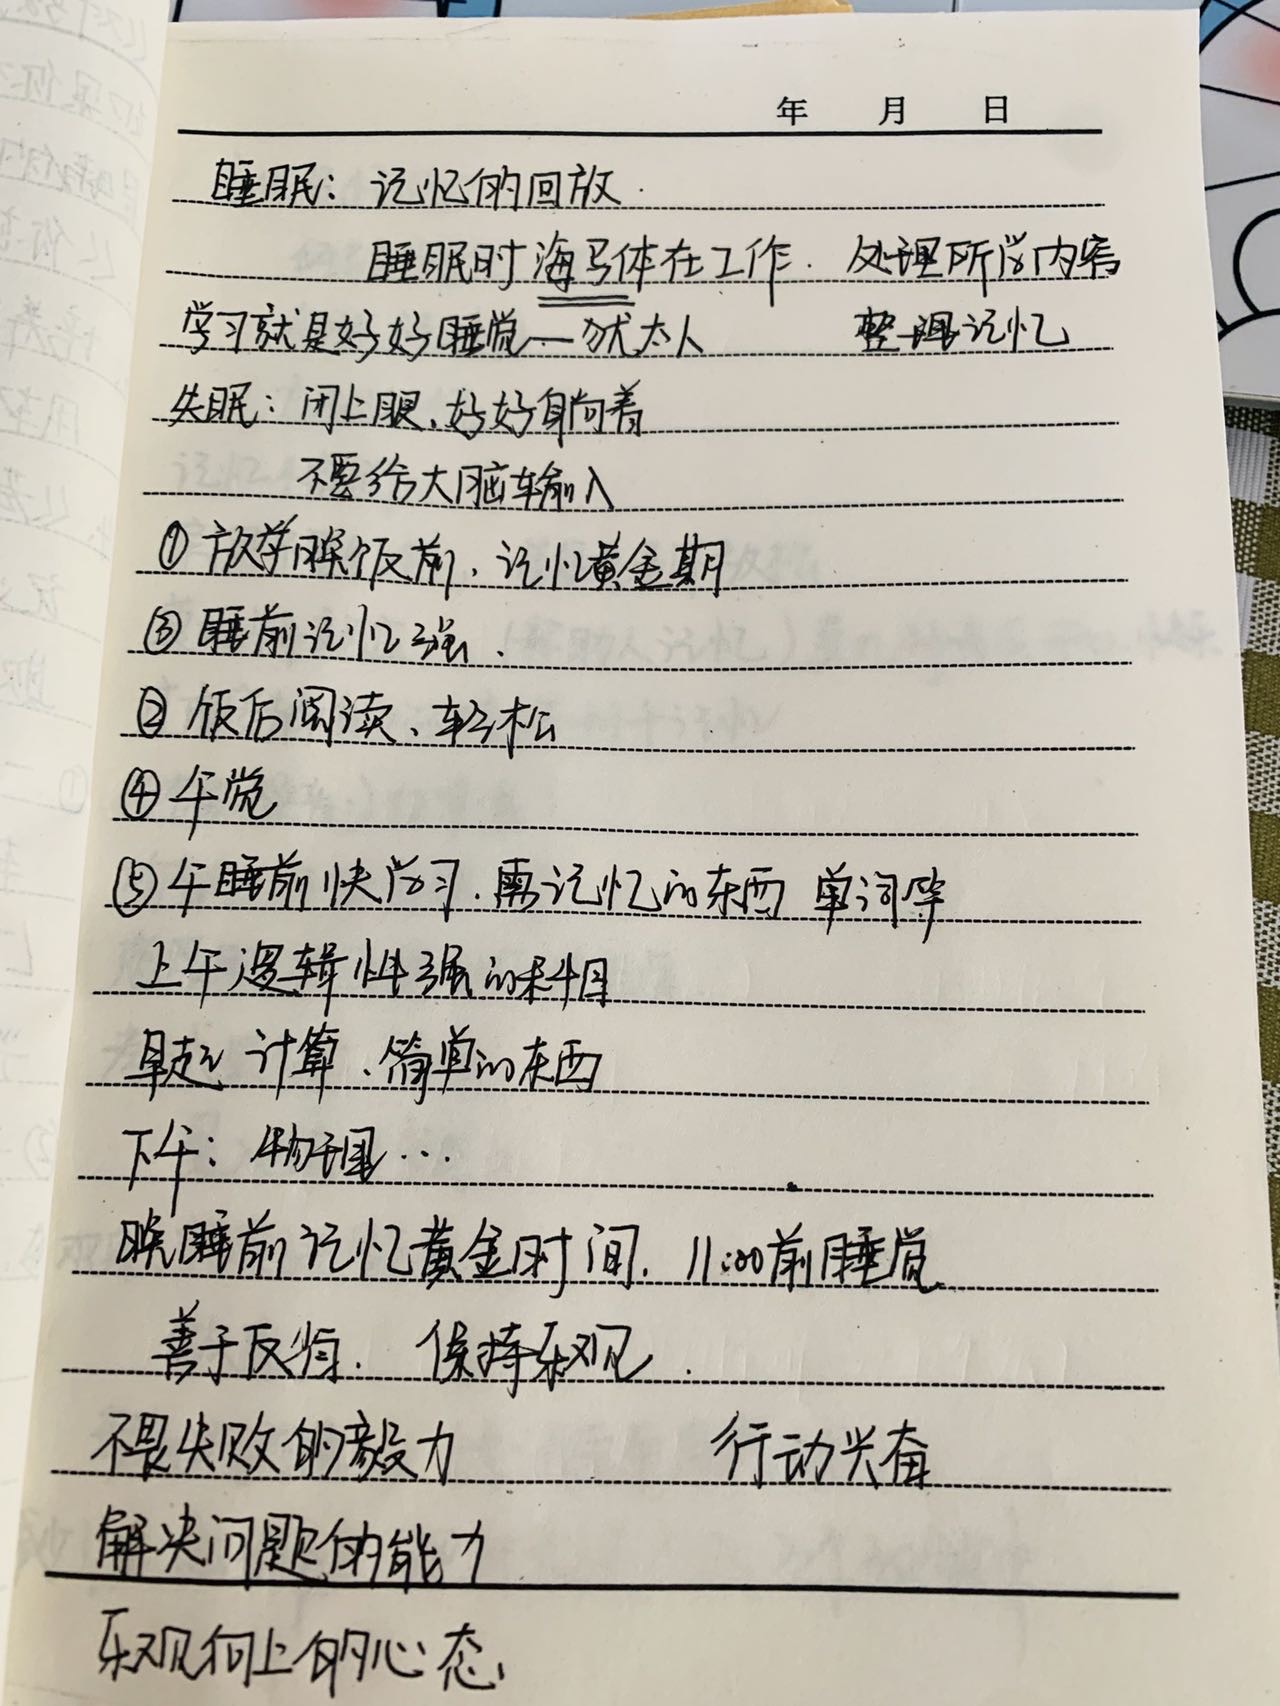 年 月 日
睡眠：记忆的回放.
睡眠时海马体在工作. 处理所学内容
学习就是好好睡觉——犹太人 整理记忆
失眠：闭上眼、好好躺着
不要给大脑输入
① 放学晚饭前、记忆黄金期
③ 睡前记忆强.
② 饭后阅读、轻松
④ 午觉
⑤ 午睡前快学习.需记忆的东西 单词等
上午逻辑性强的科目
早起 计算、简单的东西
下午：物理…
晚睡前记忆黄金时间. 11:00前睡觉
善于反省. 保持乐观.
不畏失败的毅力 行动兴奋
解决问题的能力
乐观向上的心态